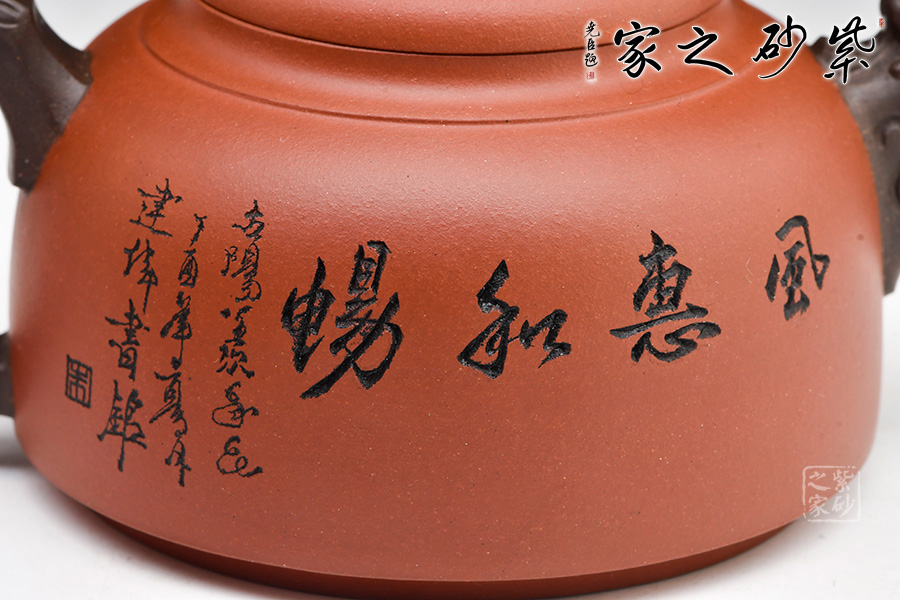 紫砂之家
尧臣题
風惠和暢
古陽羨
丁酉年夏月
建偉書銘
紫砂
之家